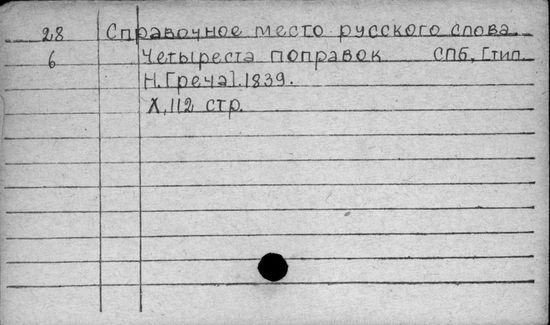 28 Справочное место русского слова.
6 Четыреста поправок СПб, [тип.
Н. Греча]. 1839.
X, 112 стр.